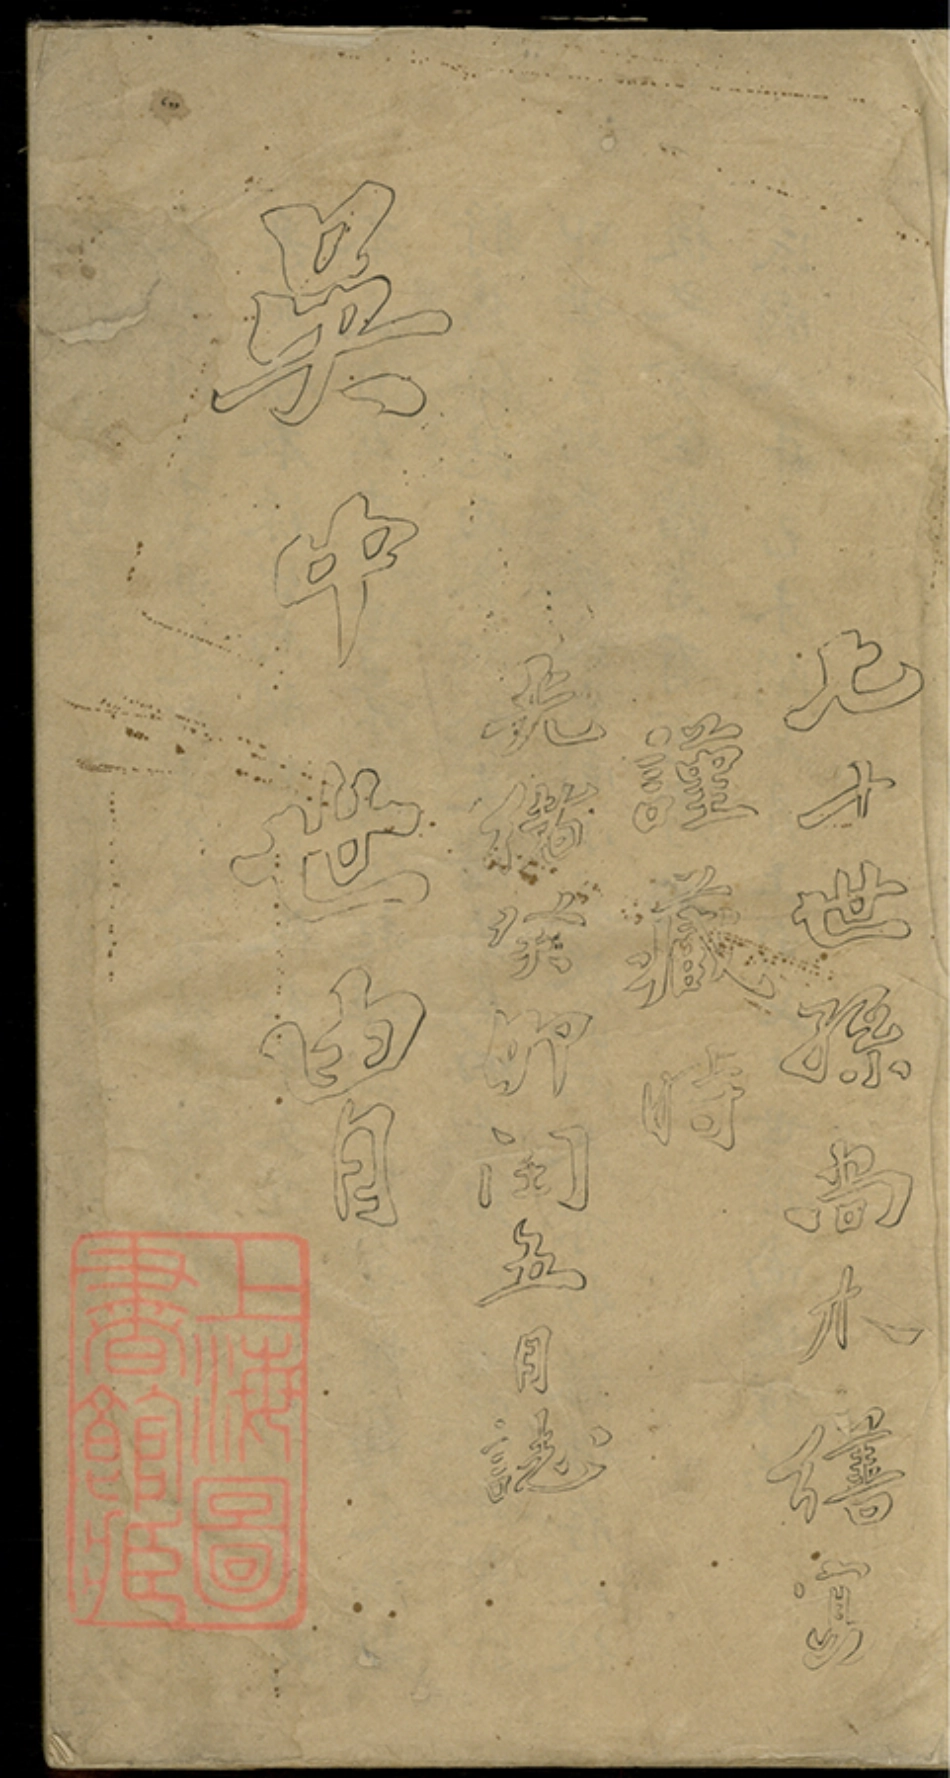 七十世孫尚木繕寫
謹藏時
光緒癸卯閏五月誌
吳中世胄
上海圖
書館藏